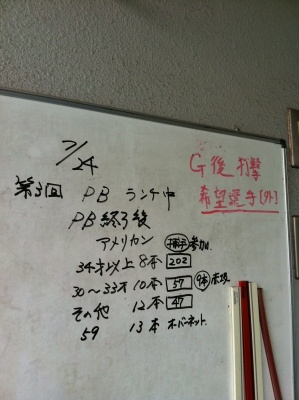 7/24
第3回 PB ランチ中
PB終了後
アメリカン 投手 参加
34才以上 8本 202
30〜33才 10本 57 9本 赤坂
その他 12本 47
59 13本 オーバーネット
G後打撃
希望選手